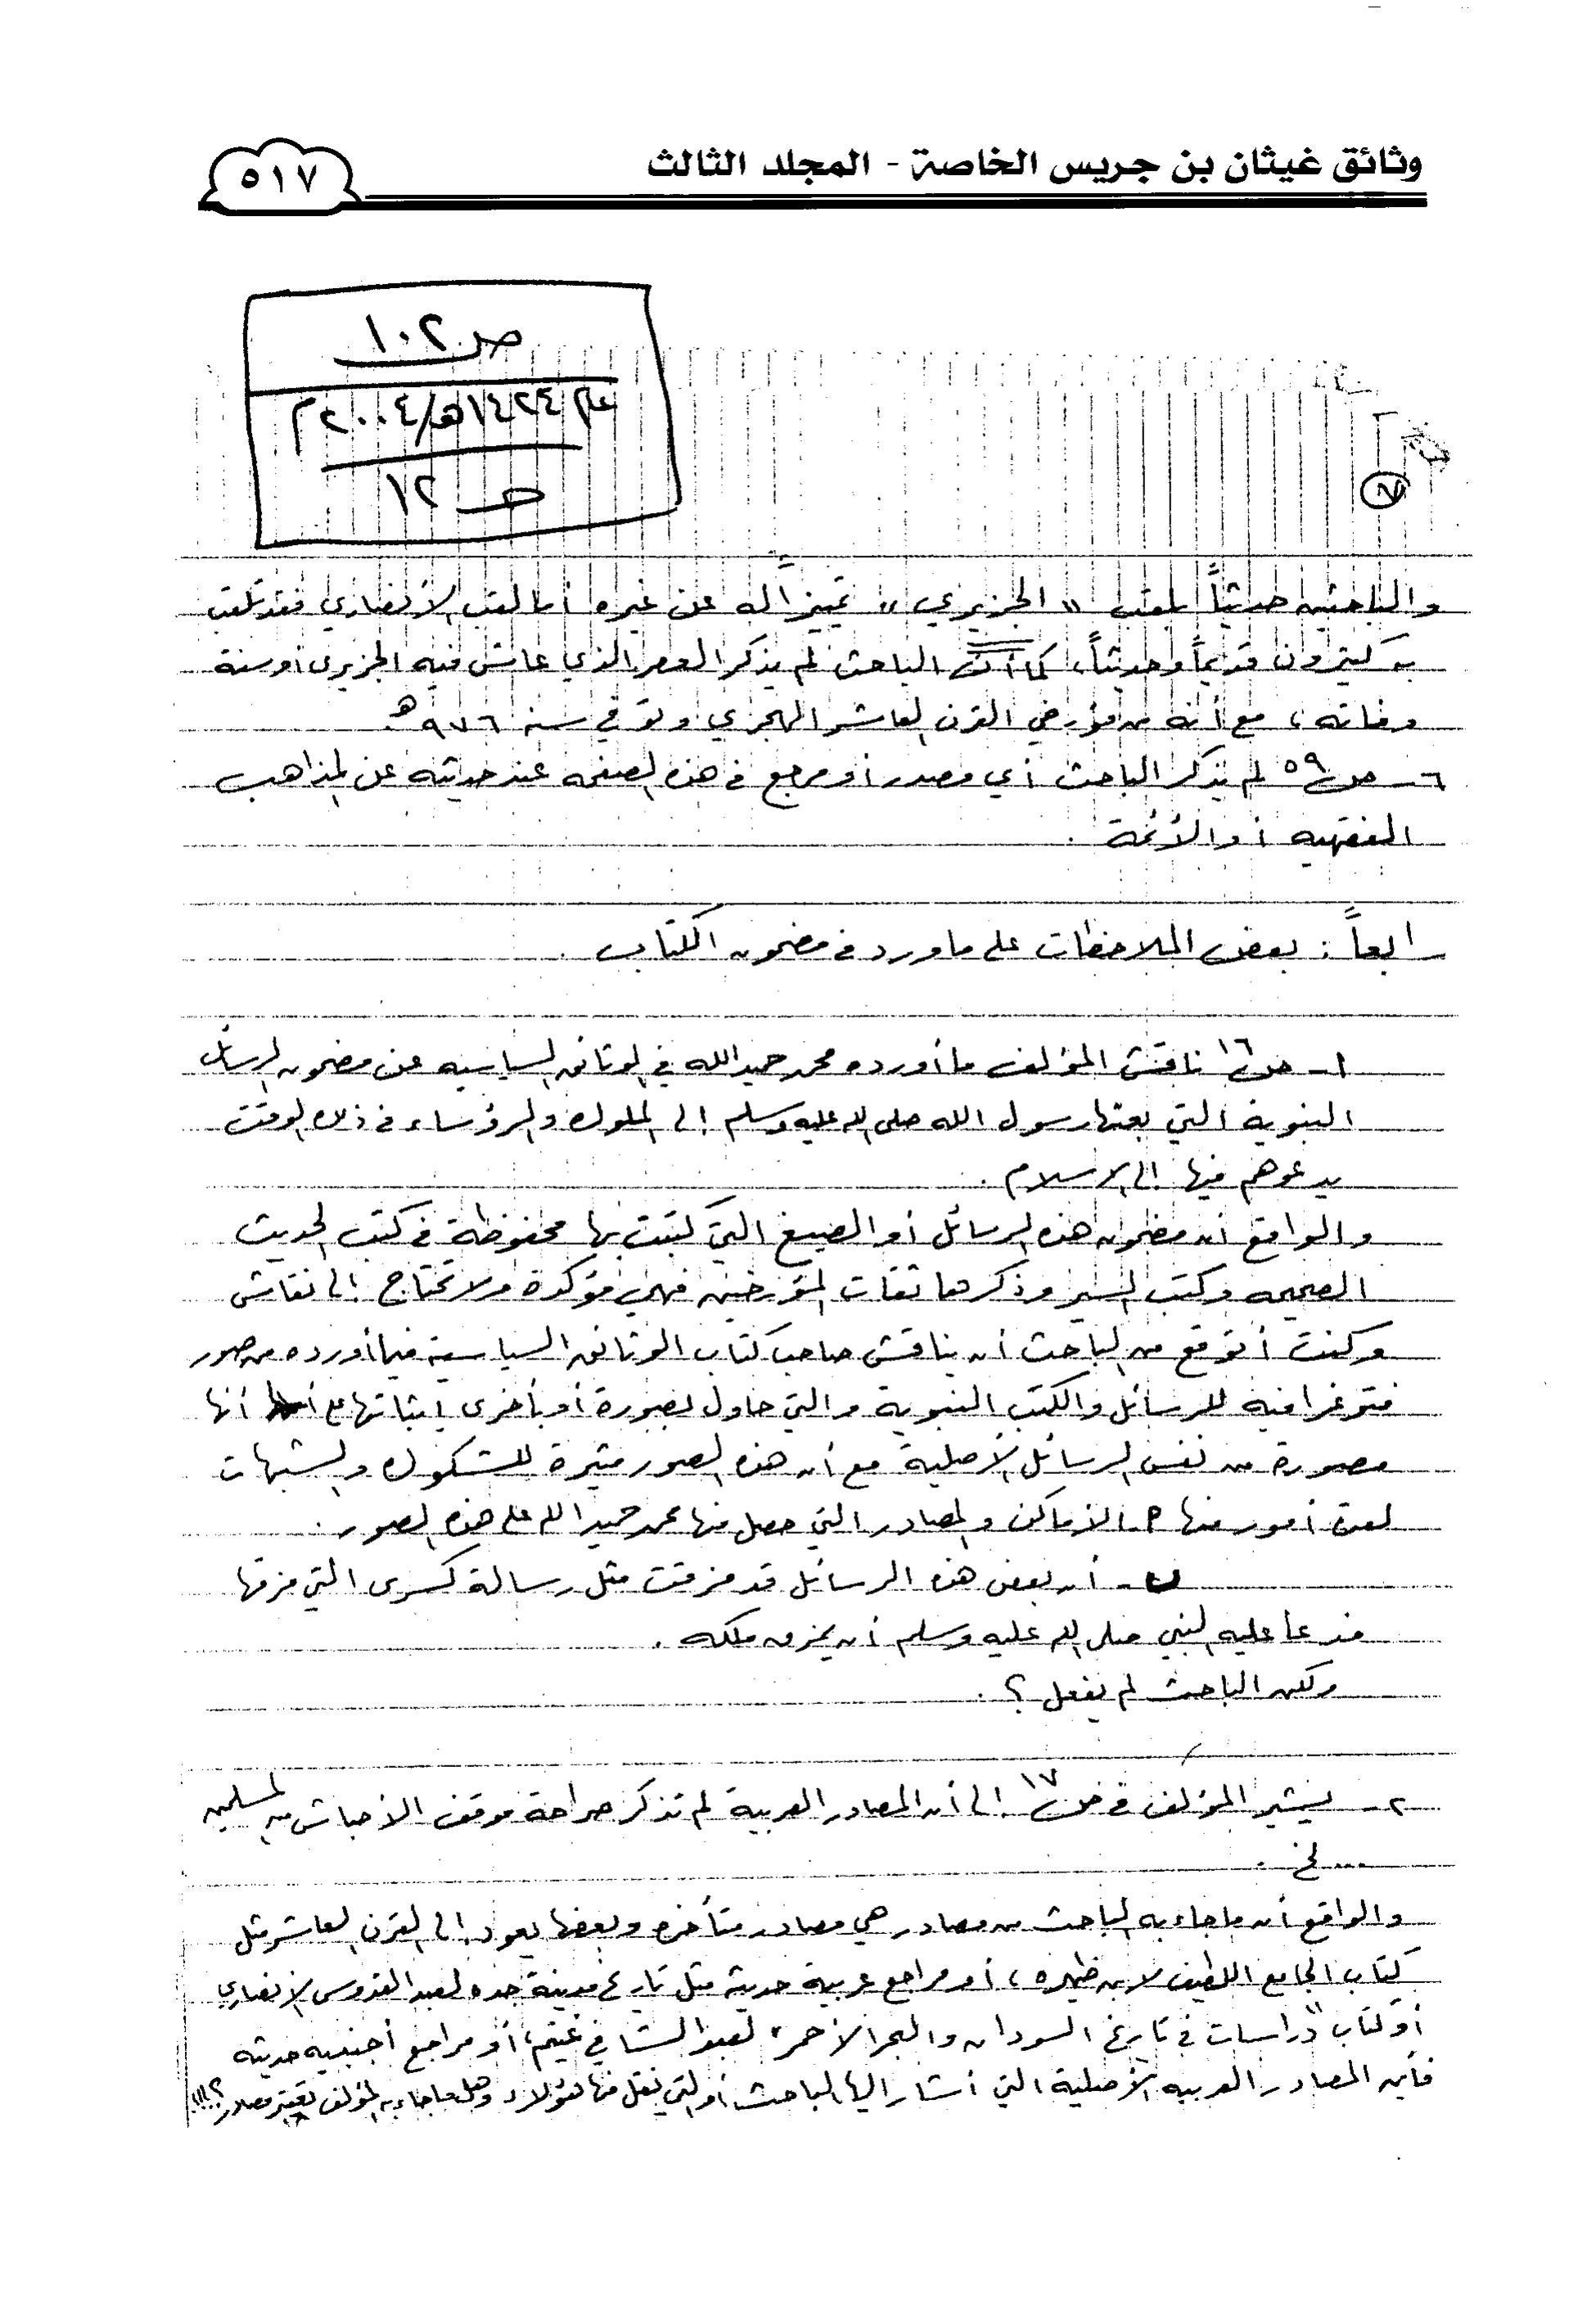 وثائق غيثان بن جريس الخاصة - المجلد الثالث
٥١٧
ص ١٠٢
عام ١٤٢٤هـ/٢٠٠٤م
ص ١٢
والباحثين حديثاً بلقب "الجزيري" تمييزاً له عن غيره أما لقب الأنصاري فقد تلقب
به كثيرون قديماً وحديثاً، كما أن الباحث لم يذكر العصر الذي عاش فيه الجزيري أو سنة
وفاته، مع أنه من مؤرخي القرن العاشر الهجري وتوفي سنة ٩٧٦هـ.
٦- ص ٥٩ لم يذكر الباحث أي مصدر أو مرجع في هذه الصفحة عند حديثه عن المذاهب
الفقهيه أو الأئمة.
رابعاً: بعض الملاحظات على ما ورد في مضمون الكتاب.
١- ص ١٦ ناقش المؤلف ما أورده محمد حميد الله في الوثائق السياسيه عن مضمون الرسائل
النبوية التي بعثها رسول الله صلى الله عليه وسلم إلى الملوك والرؤساء في ذلك الوقت
يدعوهم فيها إلى الاسلام.
والواقع أن مضمون هذه الرسائل أو الصيغ التي كتبت بها محفوظة في كتب الحديث
الصحيحه وكتب السير وذكرها ثقات المؤرخين فهي مؤكدة ولا تحتاج إلى نقاش
وكنت أتوقع من الباحث أن يناقش صاحب كتاب الوثائق السياسية فيما أورده من صور
فتوغرافيه للرسائل والكتب النبوية والتي حاول بصورة أو بأخرى إثباتها على أنها
مصورة من نفس الرسائل الأصلية مع أن هذه الصور مثيرة للشكوك والشبهات
لعدة أمور منها أ- الأماكن والمصادر التي حصل منها محمد حميد الله على هذه الصور.
ب- أن بعض هذه الرسائل قد مزقت مثل رسالة كسرى التي مزقها
فدعا عليه النبي صلى الله عليه وسلم أن يمزق ملكه.
ولكن الباحث لم يفعل؟.
٢- يشير المؤلف في ص ١٧ إلى أن المصادر العربية لم تذكر صراحة موقف الأحباش من المسلمين
... لخ.
والواقع أن ما جاء به الباحث من مصادر هي مصادر متأخره وبعضها يعود إلى القرن العاشر مثل
كتاب الجامع اللطيف لابن ظهيره، أو مراجع عربية حديثة مثل تاريخ مدينة جده لعبد القدوس الأنصاري
أو كتاب "دراسات في تاريخ السودان والبحر الأحمر" لعبد الشافي غنيم، أو مراجع أجنبيه حديثه
فأين المصادر العربيه الأصلية التي أشار إليها الباحث أو التي نقل منها هؤلاء وهل ما جاء به المؤلف تعتبر مصادر؟!!!